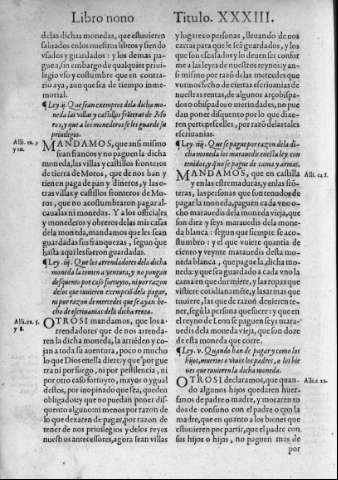 Libro nono
Titulo. XXXIII.
de las dichas monedas, que estuuieren
salvados en los nuestros libros y siendo
vsados y guardados : y los demas pa-
guen, sin embargo de qualquier priui-
legio vso y costumbre que en contra-
rio aya, aunque sea de tiempo inme-
morial.
¶Ley.ij. Que sean exemptos de la dicha mo-
neda las villas y castillos frõteras de Mo-
ros, y que a los monederos se les guarde su
priuilegio.
MANDAMOS, que ansi mismo
sean francos y no paguen la dicha
moneda, las villas y castillos fronteros
de tierra de Moros, que de nos han y
tienen paga de pan y dineros, y las o-
tras villas y castillos fronteros de Mo-
ros, que no acostumbraron pagar al-
caualas ni monedas. Y a los officiales
y monederos y obreros de las mis casas
dela moneda, mandamos que les sean
guardadas sus franquezas, segun que
hasta aqui les fueron guardadas.
¶Ley .iij. Que los arrendadores dela dicha
moneda la tomen a ventura, y no pongan
descuento por caso fortuyto, ni por razon
de los que tuuieren exempciõ dela pagar,
ni por razon de mercedes que se ayan he-
cho de escriuanias dela dicha renta.
OTROSI mandamos, que los a-
rrendadores que de nos arren-
daren la dicha moneda, la arrieden y co-
jan a toda su auentura, poco o mucho
lo que Dios en ella diere y que por gue
rra ni por fuego, ni por pestilencia, ni
por otro caso fortuyto, mayor o ygual
destos, por inopinado que sea, queden
obligados; y que no puedan poner dis-
quento alguno en menos por razon de
lo que dexaren de pagar, por razon de
tener de nos priuilegios y delos reyes
nuestros antecessores, agora sean villas
Alli. ro. 5
y 8.
y lugares o personas, lleuando de nos
cartas para que le seã guardados, y los
que son escusados y lo deuen ser confor
me a las leyes de nuestros reynos: y an-
si mismo por razõ de las mercedes que
vuimos hecho de ciertas escriuanias de
nuestras rentas, de algunos arçobispa-
dos o obispados o merindades, no pue
dan poner disquento por lo que dixe-
ren pertenescelles, por razõ delas tales
escriuanias.
¶Ley .iiij. Que se pague por razon de la di-
cha moneda los marauedis enesta ley con
tenidos, y q̃ no se pague de cama y armas.
MANDAMOS, que en castilla
y en las estremaduras, y en las frõte
ras, las personas que son tenudos de
pagar la moneda, paguen cada vno o-
cho marauedis dela moneda vieja, que
son diez y seys marauedis dela mone-
da blanca : segun que siempre se aco-
stumbro : y el que vuiere quantia de
ciento y veynte marauedis desta mo-
neda blanca, que pague la dicha mo-
neda: y que sea guardado a cada vno la
cama en que durmiere, y las ropas que
vistiere continuamente, y las armas que
tuuiere, las que de razon deuieren te-
ner, segũ la persona que fuere : y que en
el reyno de Leon se paguen seys mara-
uedis dela moneda vieja, que son doze
dela moneda que corre.
¶Ley. v. Quando han de pagar y como los
hijos, muertos o viuos los padres, o los bie
nes que tuuieren la dicha moneda.
OTROSI declaramos, que quan-
do algunos hijos quedaren huer-
fanos de padre o madre, y moraren to
dos de consuno con el padre o con la
madre, que en quanto a los bienes que
estuuieren por partir, que el padre con
sus hijos o hijas, no paguen mas de
por
Alli. ca 8.
Alli. c 12.